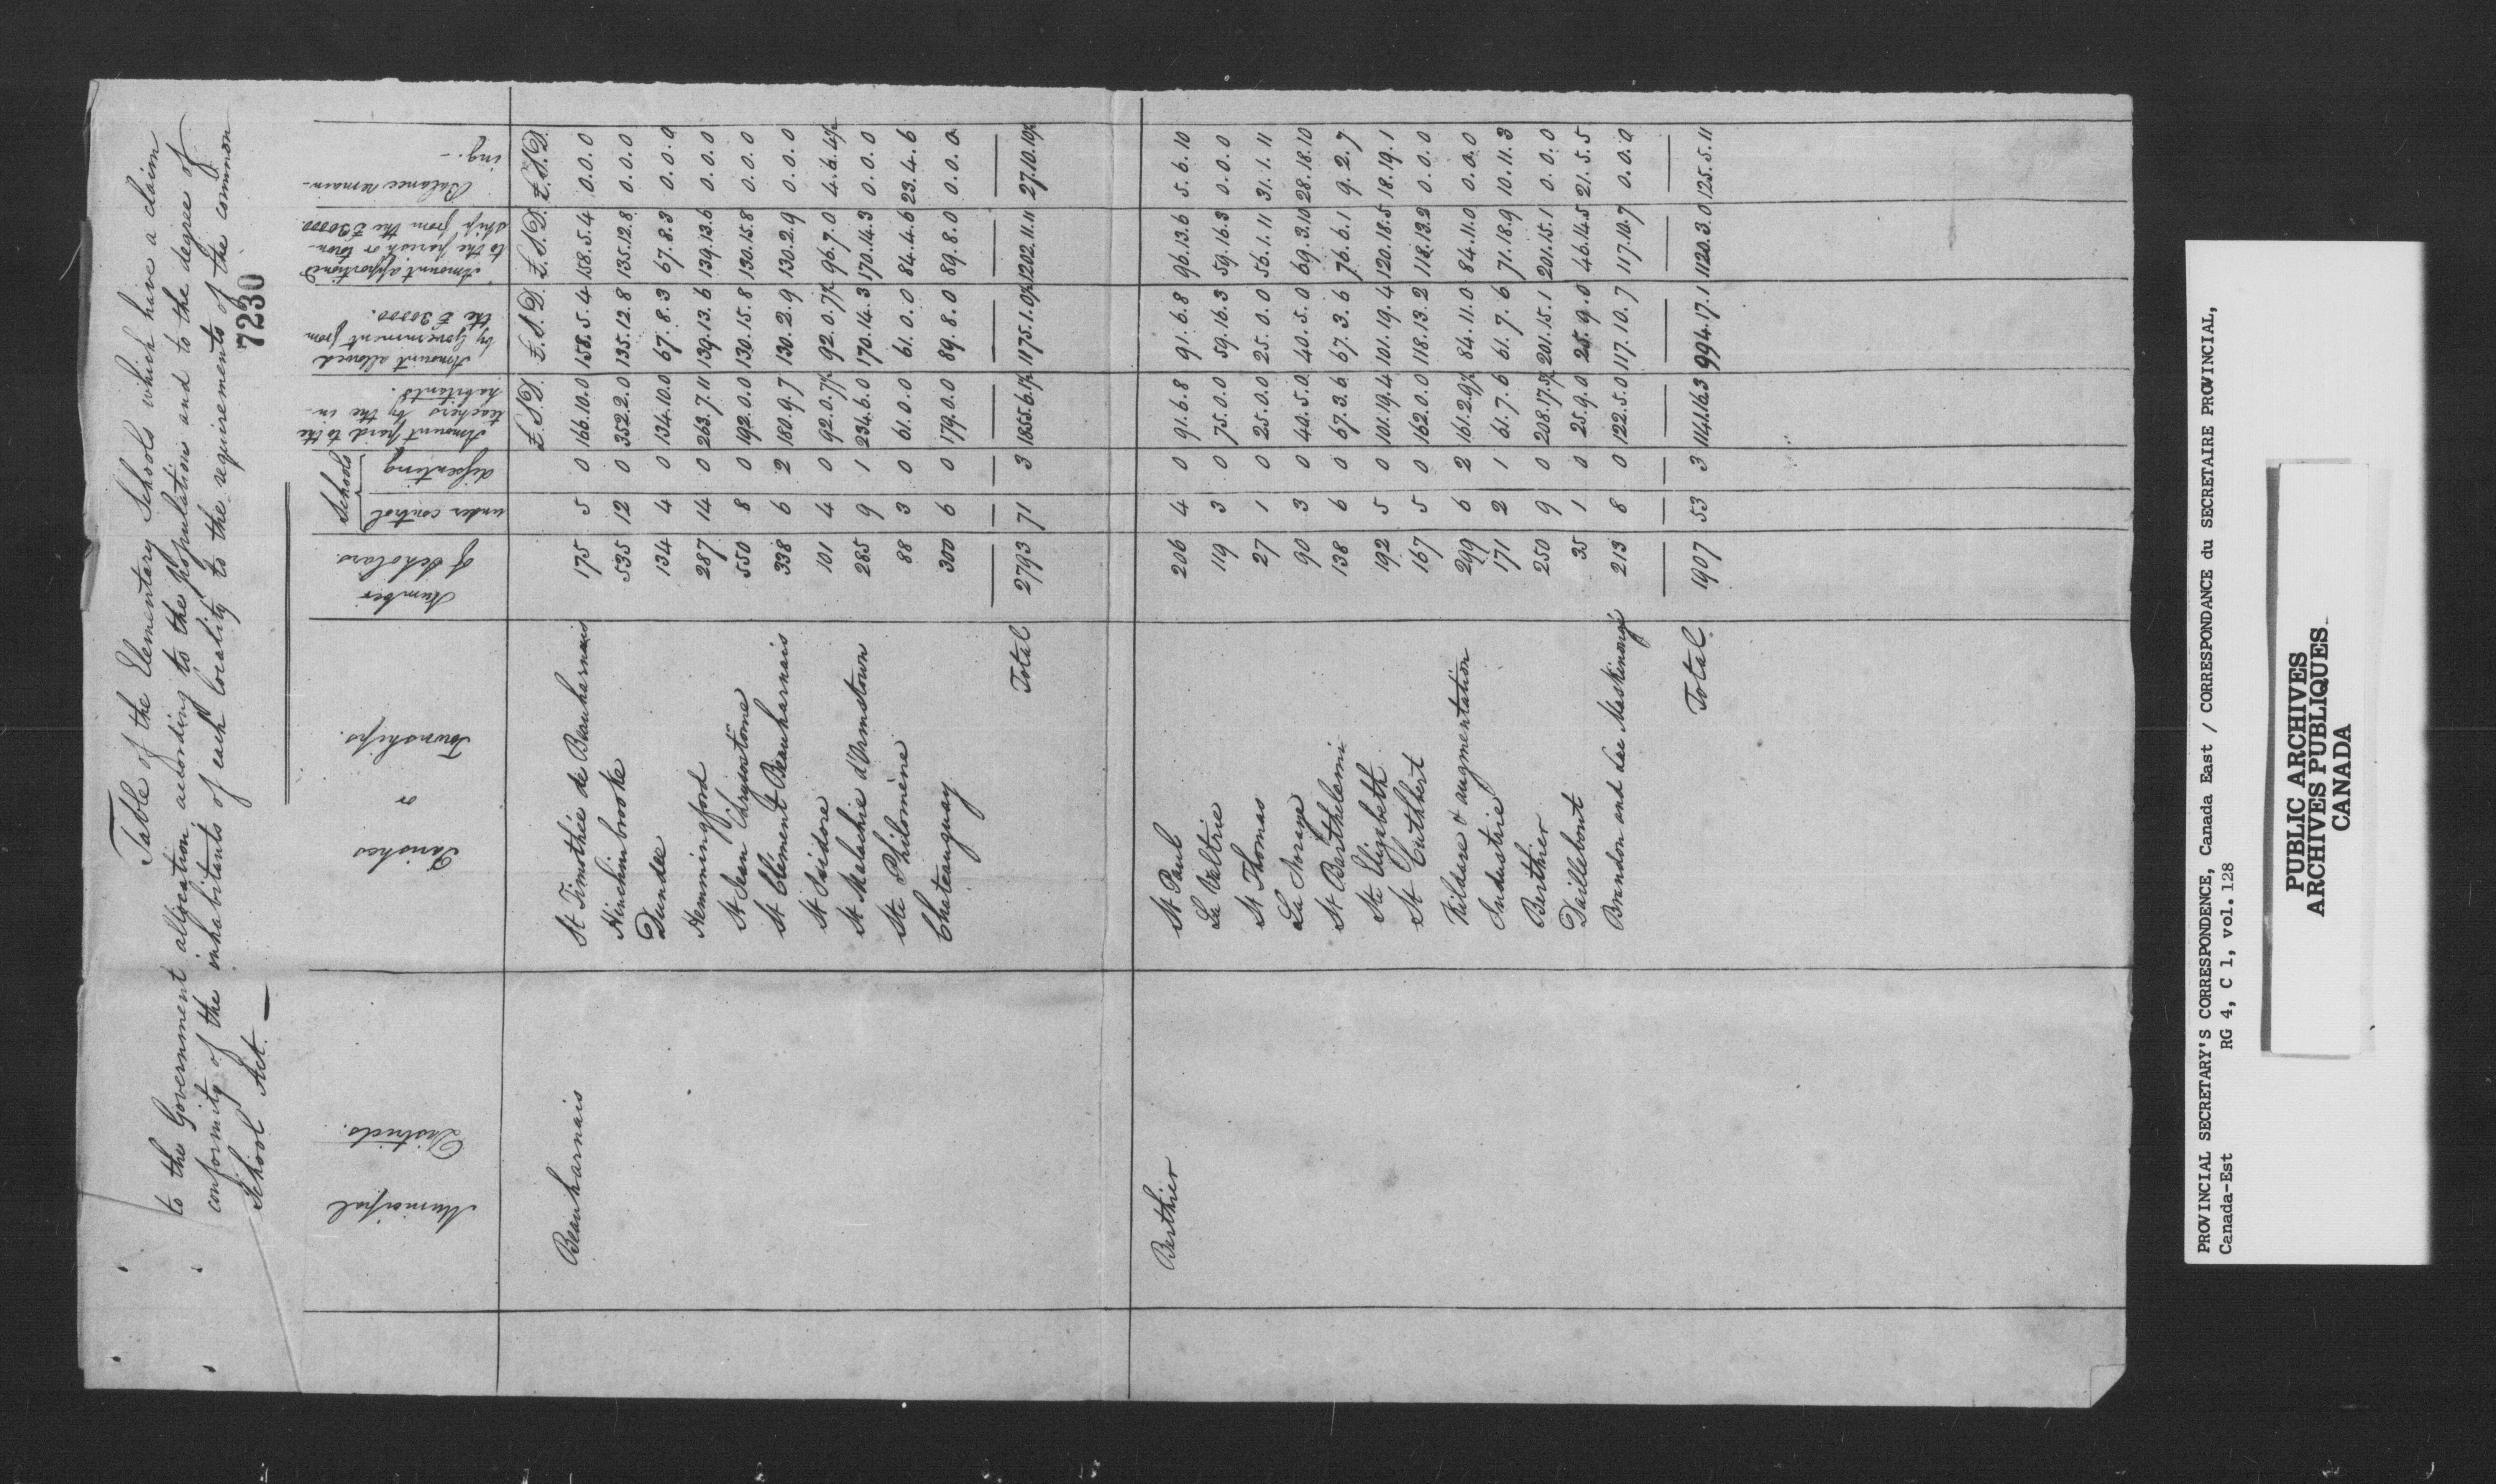 Table of the Elementary Schools which have a claim
to the Government allocation according to the population and to the degree of
conformity of the inhabitants of each locality to the requirements of the common
School Act. —
7230
Municipal Districts.
Parishes or Townships.
Number of Scholars.
Schools
under control
dissenting
Amount paid to the teachers by the in-
habitants.
Amount allowed by Government from the £30000.
Amount apportioned to the parish or town-
ship from the £30000.
Balance remain-
ing. -
£. S. D. £. S. D. £. S. D. £. S. D.
Beauharnais St Timothée de Beauharnais 175 5 0 166.10.0 158.5.4 158.5.4 0.0.0
Hinchinbrooke 535 12 0 352.2.0 135.12.8 135.12.8 0.0.0
Dundee 134 4 0 134.10.0 67.8.3 67.8.3 0.0.0
Hemmingford 287 14 0 263.7.11 139.13.6 139.13.6 0.0.0
St Jean Chrysostôme 550 8 0 192.0.0 130.15.8 130.15.8 0.0.0
St Clément Beauharnais 338 6 2 180.9.7 130.2.9 130.2.9 0.0.0
St Isidore 101 4 0 92.0.7½ 92.0.7½ 96.7.0 4.6.4½
St Malachie d'Ormstown 285 9 1 234.6.0 170.14.3 170.14.3 0.0.0
Ste Philomène 88 3 0 61.0.0 61.0.0 84.4.6 23.4.6
Chateauguay 300 6 0 179.0.0 89.8.0 89.8.0 0.0.0
Total 2793 71 3 1855.6.1½ 1175.1.0½ 1202.11.11 27.10.10½
Berthier St Paul 206 4 0 91.6.8 91.6.8 96.13.6 5.6.10
La Valtrie 119 3 0 75.0.0 59.16.3 59.16.3 0.0.0
St Thomas 27 1 0 25.0.0 25.0.0 56.1.11 31.1.11
La Noraye 90 3 0 40.5.0 40.5.0 69.3.10 28.18.10
St Barthélemi 138 6 0 67.3.6 67.3.6 76.6.1 9.2.7
Ste Elizabeth 192 5 0 101.19.4 101.19.4 120.18.5 18.19.1
St Cuthbert 167 5 0 162.0.0 118.13.2 118.13.2 0.0.0
Kildare & augmentation 299 6 2 161.2.9½ 84.11.0 84.11.0 0.0.0
Industrie 171 2 1 61.7.6 61.7.6 71.18.9 10.11.3
Berthier 250 9 0 208.17.5½ 201.15.1 201.15.1 0.0.0
Daillebout 35 1 0 25.9.0 25.9.0 46.14.5 21.5.5
Brandon and Lac Maskinongé 213 8 0 122.5.0 117.10.7 117.10.7 0.0.0
Total 1907 53 3 1141.16.3 994.17.1 1120.3.0 125.5.11
PROVINCIAL SECRETARY'S CORRESPONDENCE, Canada East / CORRESPONDANCE du SECRETAIRE PROVINCIAL,
Canada-Est RG 4, C 1, vol. 128
PUBLIC ARCHIVES
ARCHIVES PUBLIQUES
CANADA